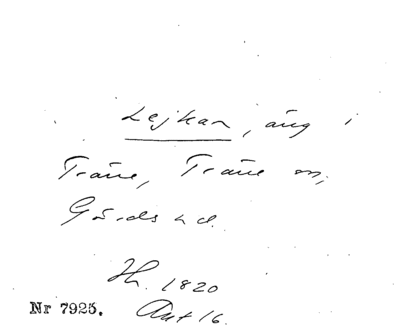 Lejkan, äng i
Träne, Träne sn,
Gärds hd.
Hh. 1820
Akt 16.
Nr 7925.